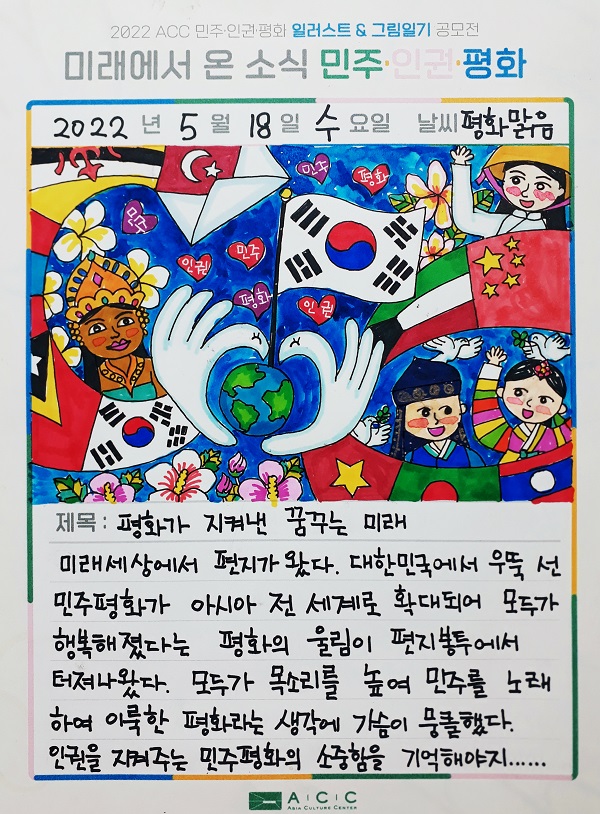 2022 ACC 민주·인권·평화 일러스트 & 그림일기 공모전
미래에서 온 소식 민주·인권·평화
2022 년 5 월 18 일 수 요일 날씨 평화맑음
민주
평화
민주
인권
민주
평화
인권
제목: 평화가 지켜낸 꿈꾸는 미래
미래세상에서 편지가 왔다. 대한민국에서 우뚝 선
민주평화가 아시아 전 세계로 확대되어 모두가
행복해졌다는 평화의 울림이 편지봉투에서
터져나왔다. 모두가 목소리를 높여 민주를 노래
하여 이룩한 평화라는 생각에 가슴이 뭉클했다.
인권을 지켜주는 민주평화의 소중함을 기억해야지......
A C C
ASIA CULTURE CENTER